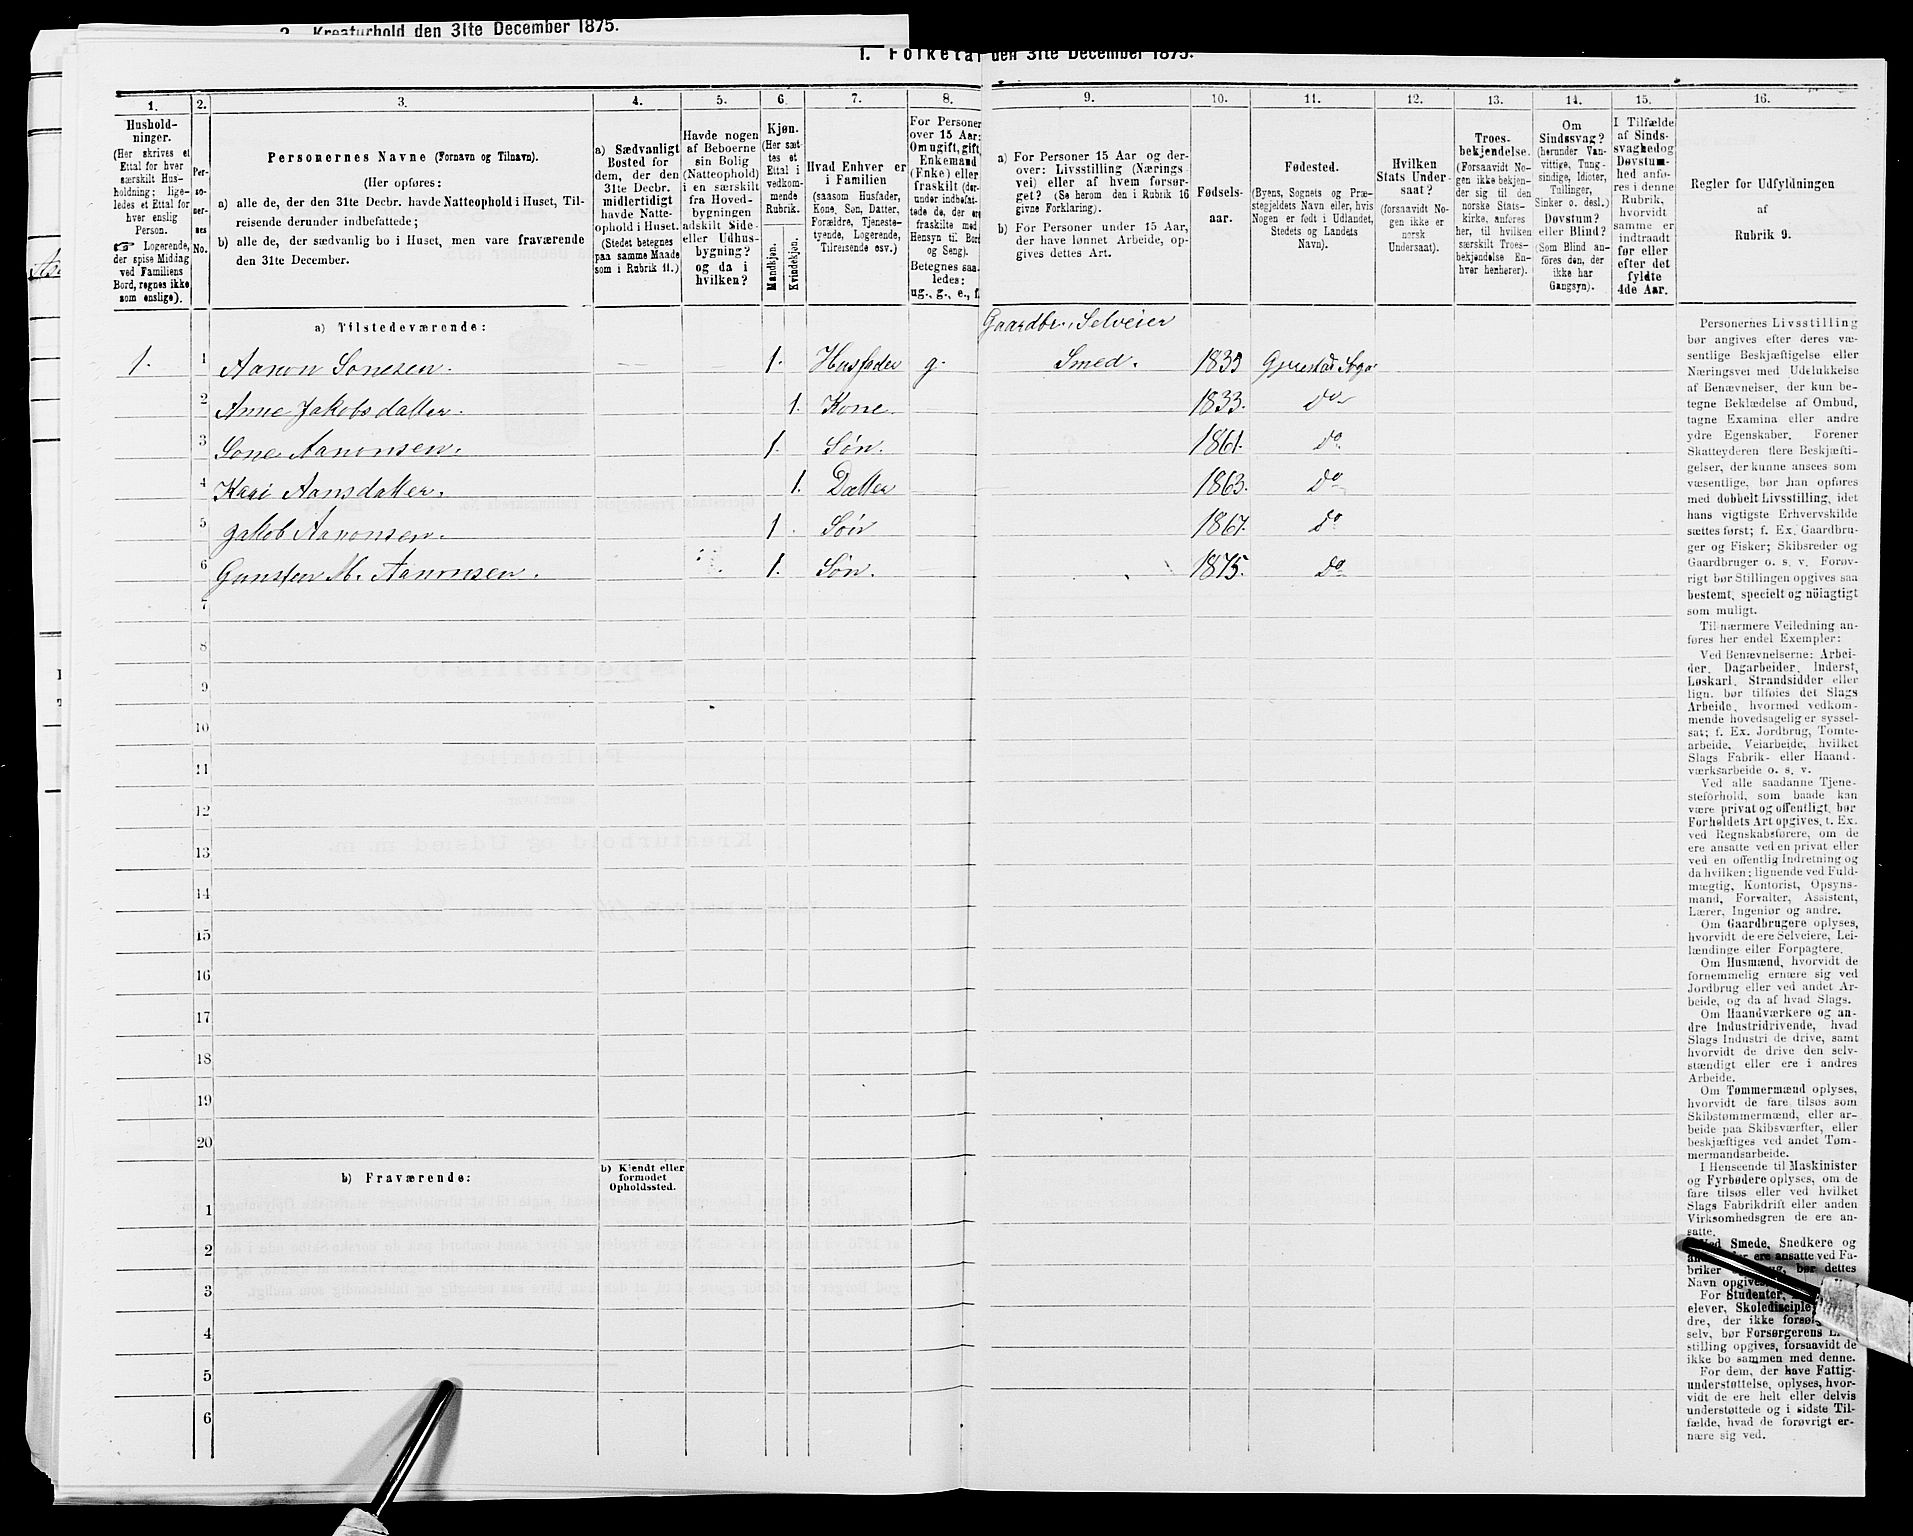 2. Kreaturhold den 31te December 1875.
1. Folketal den 31te December 1875.
1.
2.
3.
4.
5.
6.
7.
8.
9.
10.
11.
12.
13.
14.
15.
16.
Hushold-
ninger.
(Her skrives et
Ettal for hver
særskilt Hus-
holdning; lige-
ledes et Ettal
for hver enslig
Person.
☞ Logerende,
der spise Middag
ved Familiens
Bord, regnes ikke
som enslige).
Per-
so-
ner-
nes
No.
Personernes Navne (Fornavn og Tilnavn).
(Her opføres:
a) alle de, der den 31te Decbr. havde Natteophold i Huset, Til-
reisende derunder indbefattede;
b) alle de, der sædvanlig bo i Huset, men vare fraværende
den 31te December.
a) Sædvanligt
Bosted for
dem, der den
31te Decbr.
midlertidigt
havde Natte-
ophold i Huset.
(Stedet betegnes
paa samme Maade
som i Rubrik 11.)
Havde nogen
af Beboerne
sin Bolig
(Natteophold)
i en særskilt
fra Hoved-
bygningen
adskilt Side-
eller Udhus-
bygning?
og da i
hvilken?
Kjøn.
(Her sæt-
tes et
Ettal i
vedkom-
mende
Rubrik.
Mandkjøn.
Kvindekjøn.
Hvad Enhver er
i Familien
(saasom Husfader,
Kone, Søn, Datter,
Forældre, Tjeneste-
tyende, Logerende,
Tilreisende osv.)
For Personer
over 15 Aar:
Om ugift, gift,
Enkemand
(Enke) eller
fraskilt (der-
under indbefat-
tede de, der ere
fraskilte med
Hensyn til Bord
og Seng).
Betegnes saa-
ledes:
ug., g., e., f.
a) For Personer 15 Aar og der-
over: Livsstilling (Nærings-
vei) eller af hvem forsør-
get? (Se herom den i Rubrik 16
givne Forklaring).
b) For Personer under 15 Aar,
der have lønnet Arbeide, op-
gives dettes Art.
Fødsels-
aar.
Fødested.
(Byens, Sognets og Præ-
stegjeldets Navn eller, hvis
Nogen er født i Udlandet,
Stedets og Landets
Navn).
Hvilken
Stats Under-
saat?
(forsaavidt No-
gen ikke er
norsk
Undersaat).
Troes-
bekjendelse.
(Forsaavidt No-
gen ikke bekjen-
der sig til den
norske Stats-
kirke, anføres
her, til hvilken
særskilt Troes-
bekjendelse En-
hver henhører).
Om
Sindssvag?
(herunder Van-
vittige, Tung-
sindige, Idioter,
Tullinger,
Sinker o. desl.)
Døvstum?
eller Blind?
(Som Blind an-
føres den, der
ikke har
Gangsyn).
I Tilfælde
af Sinds-
svaghed og
Døvstum-
hed anfø-
res i denne
Rubrik,
hvorvidt
samme er
indtraadt
før eller
efter det
fyldte
4de Aar.
Regler for Udfyldningen
af
Rubrik 9.
a) Tilstedeværende:
Gaardbr. Selveier
1. 1 Aanon Sonesen. 1. Husfader g. Smed. Gjerestad Sogn
2 Anne Jakobsdatter. 1. Kone. 1833. Do
3 Sone Aanonsen. 1. Søn. 1861. Do
4 Kari Aansdatter. 1. Datter 1863. Do
5 Jakob Aanonsen. 1. Søn 1867. Do
6 Gunsten M. Aanonsen. 1. Søn. 1875. Do
7
8
9
10
11
12
13
14
15
16
17
18
19
20
b) Fraværende:
b) Kjendt eller
formodet
Opholdssted.
1
2
3
4
5
6
Personernes Livsstilling
bør angives efter deres væ-
sentlige Beskjæftigelse eller
Næringsvei med Udelukkelse
af Benævnelser, der kun be-
tegne Beklædelse af Ombud,
tagne Examina eller andre
ydre Egenskaber. Forener
Skatteyderen flere Beskjæfti-
gelser, der kunne ansees som
væsentlige, bør han opføres
med dobbelt Livsstilling, idet
hans vigtigste Erhvervskilde
sættes først; f. Ex. Gaardbru-
ger og Fisker; Skibsreder og
Gaardbruger o. s. v. Forøv-
rigt bør Stillingen opgives saa
bestemt, specielt og nöiagtigt
som muligt.
Til nærmere Veiledning an-
føres her endel Exempler:
Ved Benævnelserne: Arbei-
der, Dagarbeider, Inderst,
Løskarl, Strandsidder eller
lign. bør tilføies det Slags
Arbeide, hvormed vedkom-
mende hovedsagelig er syssel-
sat; f. Ex. Jordbrug, Tomte-
arbeide, Veiarbeide, hvilket
Slags Fabrik- eller Haand-
værksarbeide o. s. v.
Ved alle saadanne Tjene-
steforhold, som baade kan
være privat og offentligt, bør
Forholdets Art opgives, t. Ex.
ved Regnskabsførere, om de
ere ansatte ved en privat eller
ved en offentlig Indretning og
da hvilken; lignende ved Fuld-
mægtig, Kontorist, Opsyns-
mand, Forvalter, Assistent,
Lærer, Ingeniør og andre.
Om Gaardbrugere oplyses,
hvorvidt de ere Selveiere, Lei-
lændinge eller Forpagtere.
Om Husmænd, hvorvidt de
fornemmelig ernære sig ved
Jordbrug eller ved andet Ar-
beide, og da af hvad Slags.
Om Haandværkere og an-
dre Industridrivende, hvad
Slags Industri de drive, samt
hvorvidt de drive den selv-
stændigt eller ere i andres
Arbeide.
Om Tømmermænd oplyses,
hvorvidt de fare tilsøs som
Skibstømmermænd, eller ar-
beide paa Skibsværfter, eller
beskjæftiges ved andet Tøm-
mermandsarbeide.
I Henseende til Maskinister
og Fyrbødere oplyses, om de
fare tilsøs eller ved hvilket
Slags Fabrikdrift eller anden
Virksomhedsgren de ere an-
satte.
Ved Smede, Snedkere og
ere ansatte ved Fa-
briker bør dettes
Navn opgives.
For Studenter,
elever, Skoledisciple
dre, der ikke forsør
selv, bør Forsørgerens
stilling opgives, forsaavidt de
ikke bo sammen med denne.
For dem, der have Fattig-
understøttelse, oplyses, hvor-
vidt de ere helt eller delvis
understøttede og i sidste Til-
fælde, hvad de forøvrigt er-
nære sig ved.